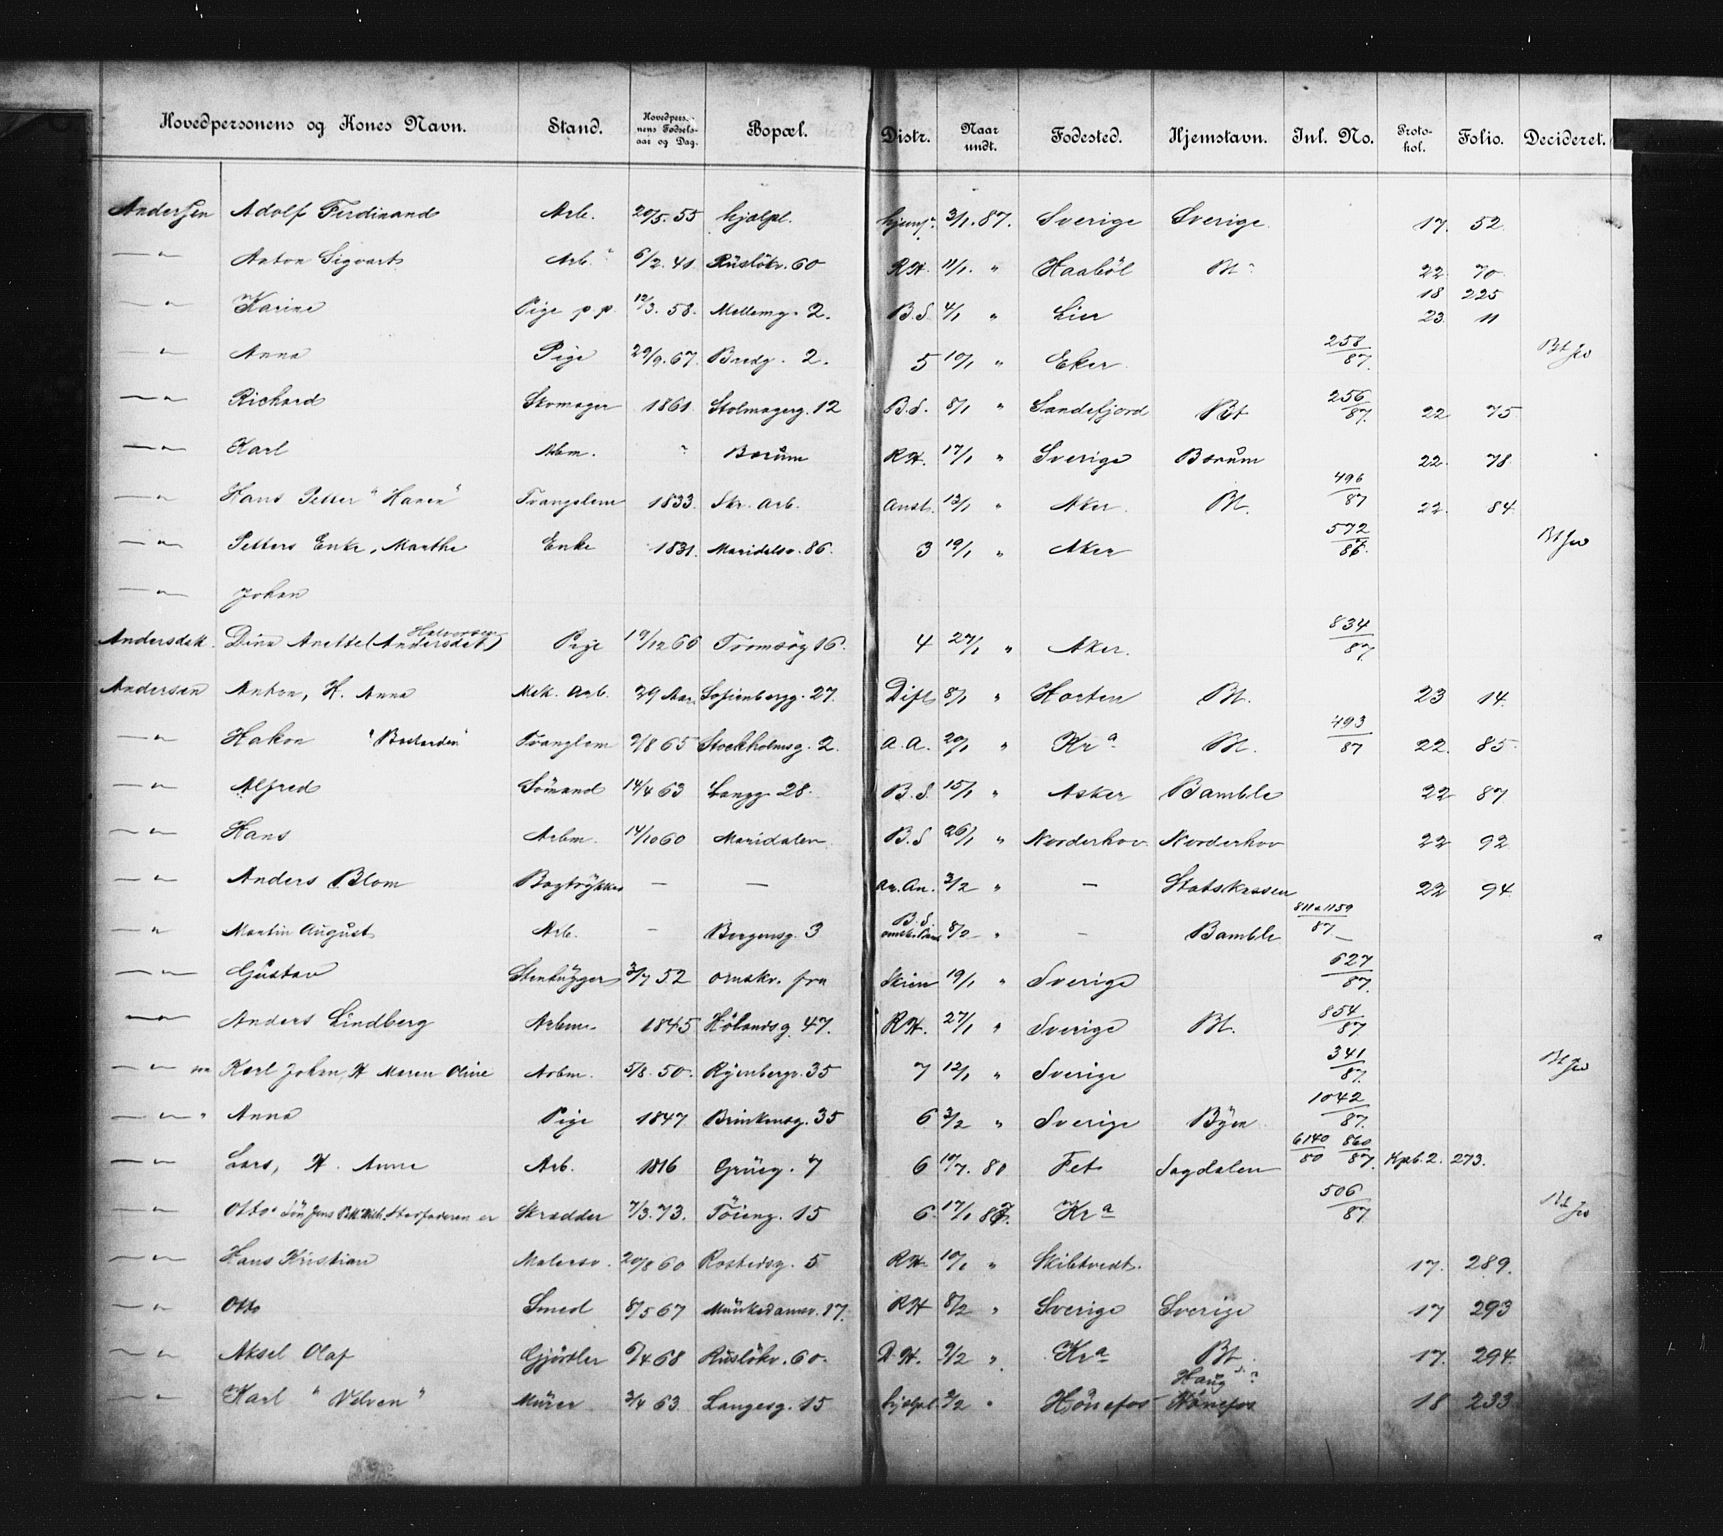 Hovedpersonens og Kones Navn. Stand. Hovedpersonens Fødselsaar og Dag. Bopæl. Distr. Naar undt. Fødested. Hjemstavn. Inl. No. Protokol. Folio. Decideret.
Andersen Adolf Ferdinand Arb. 20/5. 55 hjælpl. 3/1. 87. Sverige Sverige 17. 52.
—"— Anton Sigvart Arb. 6/2. 41 Rüsløkv. 60 R.H. 11/1 " Haabøl Bt 22 70
18 225
—"— Karine Pige p.p. 12/3. 58. Mellemg. 2. B.S. 4/1 " Lier 23 11
—"— Anna Pige 29/9. 67. Bredg. 2. 5 10/1 " Eker 258/87. Bt
—"— Richard Skomager 1861. Stolmagerg. 12 B.S. 8/1 " Sandefjord Bt 256/87. 22 75
—"— Karl Arbm. " Bærüm R.H. 17/1 " Sverige Bærüm 22. 78
—"— Hans Petter "Haren" Tvangslem 1833. Skr. Arb. Anst. 13/1 " Aker. Bt. 496/87 22. 84
—"— Petters Enke, Marthe Enke 1831. Maridalsv. 86. 3 19/1 " Aker 572/86. Bt
—"— Johan
Andersdat. Dina Anette (Halvorsen Andersdat) Pige 19/12 66 Tromsøg 16. 4 27/1 " Aker. 834/87.
Andersen Anton, H. Anna Mek. Arb. 39 Aar Sofienbergg. 27. Dift 8/1 " Horten Bt. 23 14.
—"— Hakon "Bastarden" Tvanglem 9/8 65 Stockholmsg. 2. A.A. 20/1 " Kra Bt. 493/87 22. 85.
—"— Alfred Sömand 14/4 63 Langg 28. B.S. 15/1 " Asker Bamble 22 87
—"— Hans Arbm. 14/10 60 Maridalen B.S 26/1 " Norderhov Norderhov 22 92
—"— Anders Blom Bogtrykker — — An. An. 3/2 " — Statskassen 22 94
—"— Martin August Arb. — Bergensg. 3 B.S. 8/2 " — Bamble 811 a 1159/87 —
—"— Güstav Stenhügger 3/7 52 omskr. fra Skien 19/1 " Sverige 627/87.
—"— Anders Lindberg Arbm. 1845 Hölandsg. 47. R.H. 27/1 " Sverige Bt. 854/87
—"— Karl Johan, H Maren Oline Arbm. 5/8. 50. Ryenbergv. 35 7 12/1 " Sverige 341/87. Bt
—"— Anna Pige 1847 Brinkensg. 35 6 3/2 " Sverige Byen 1042/87.
—"— Lars, H. Anne Arb. 1816 Grüeg. 7 6 19/7. 80 Fet Sagdalen 6140/80 860/87. Kpb. 2. 273.
—"— Otto Sön Jens Stedfaderen er Skrædder 7/3. 73. Töieng. 15 6. 17/1 87. Kra 506/87. Bt
—"— Hans Kristian Malersv. 20/8 60 Rostedsg. 5 R.H. 10/1 " Skibtvedt. 17. 289.
—"— Otto Smed 8/5 67 Münkedamsv. 17. R.H 8/2 " Sverige Sverige 17 293
—"— Aksel Olaf Gjörtler 9/4 68 Rüsløkv. 60. R.H. 9/2 " Kra Bt. 17. 294.
—"— Karl "Nilven" Mürer 3/4 63 Langesg. 15 hjælpl 3/2 " Hönefos Haug Hönefos 18 233